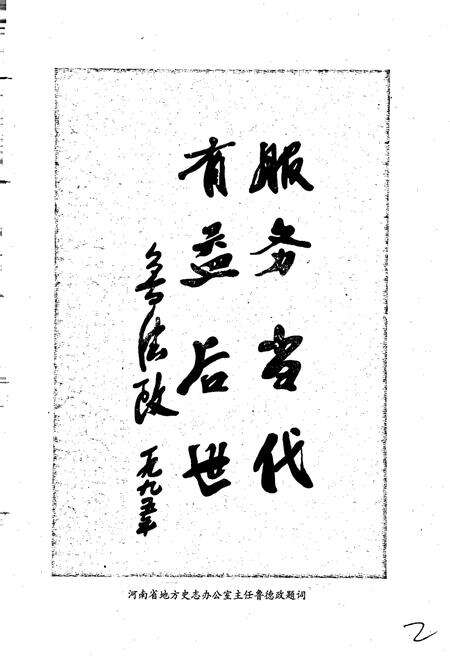 服务当代
有益后世
鲁德政
一九九五年
河南省地方史志办公室主任鲁德政题词
2